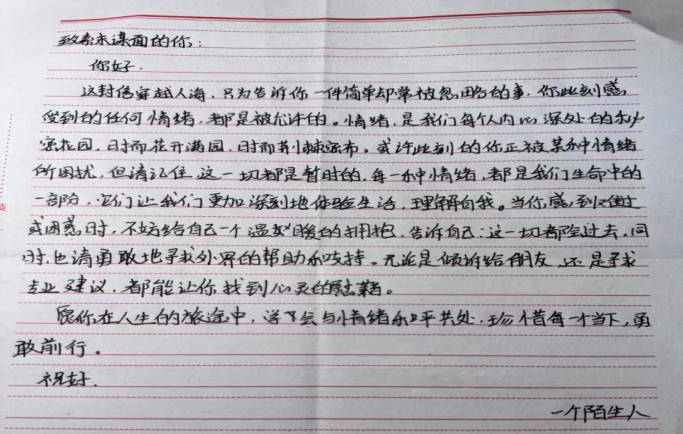 致素未谋面的你：
你好.
这封信穿越人海，只为告诉你一件简单却常被忽略的事，你此刻感
受到的任何情绪，都是被允许的。情绪，是我们每个人内心深处的秘
密花园，时而花开满园，时而荆棘密布。或许此刻的你正被某种情绪
所困扰，但请记住，这一切都是暂时的，每一种情绪，都是我们生命中的
一部分，它们让我们更加深刻地体验生活，理解自我。当你感到疲惫
或困惑时，不妨给自己一个温暖的拥抱，告诉自己：这一切都会过去，同
时，也请勇敢地寻求外界的帮助和支持。无论是倾诉给朋友，还是寻求
专业建议，都能让你找到心灵的慰藉。
愿你在人生的旅途中，学会与情绪和平共处，珍惜每一个当下，勇
敢前行。
祝好.
一个陌生人